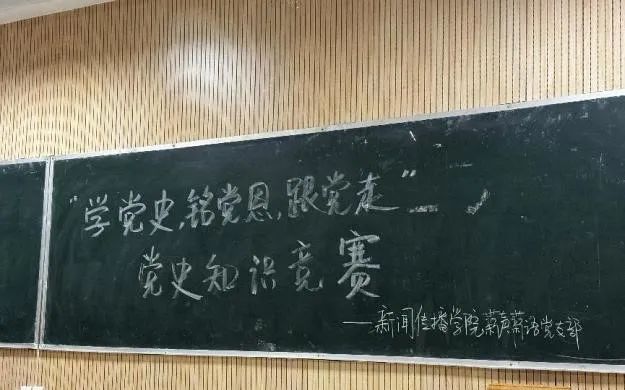 "学党史,铭党恩,跟党走"——
党史知识竞赛
——新闻传播学院慕声慕语党支部